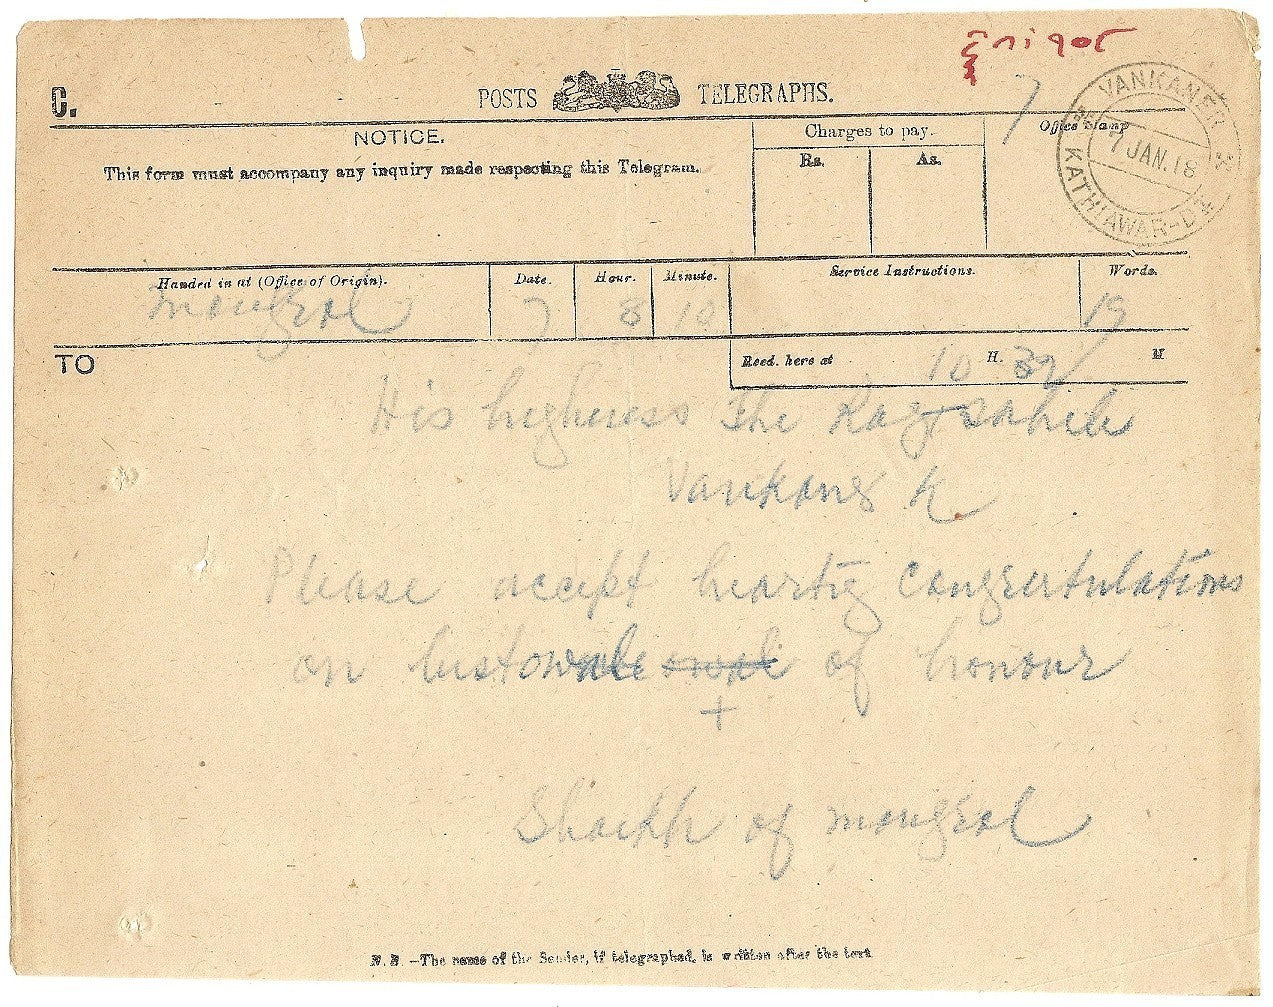 C.
POSTS TELEGRAPHS.
VANKANER
7 JAN. 18
KATHIAWAR-DT
7
NOTICE.
This form must accompany any inquiry made respecting this Telegram.
Charges to pay.
Rs. As.
Office Stamp
Handed in at (Office of Origin). Date. Hour. Minute. Service Instructions. Words.
Mongrol 7 8 10 19
TO
Recd. here at 10 H. 39 M
His highness The Raj sahib
Vankaner K
Please accept hearty congratulations
on bestowal of honour
Shaikh of mongrol
N. B. —The name of the Sender, if telegraphed, is written after the text